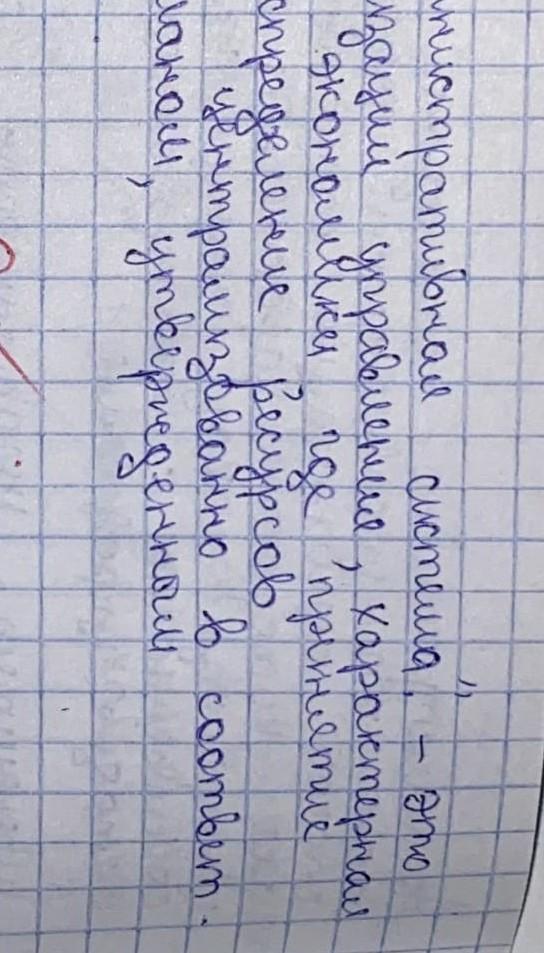 нистративная система", – это
зации управления, характерная
экономики где принятие
спределение ресурсов
централизованно в соответ.
ланом, утвержденным